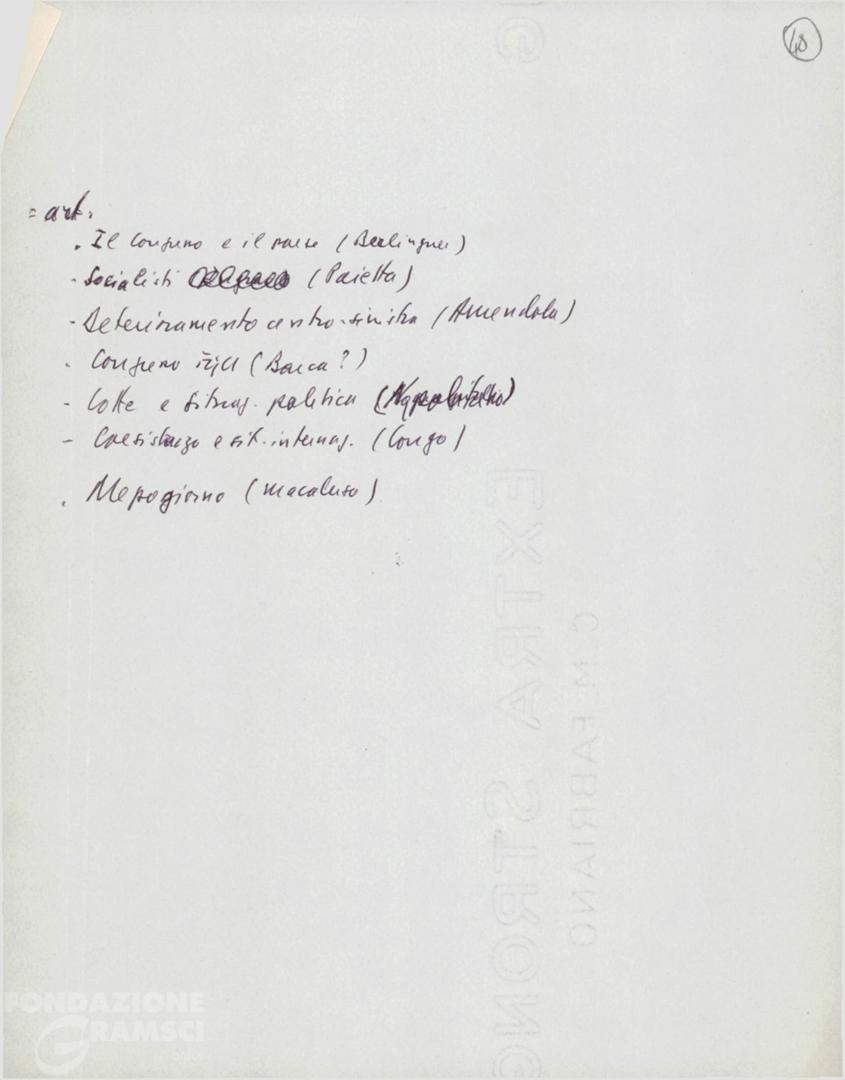 48
= art.
. Il Congresso e il paese (Berlinguer)
- Socialisti (Paietta)
- Deterioramento centro-sinistra (Amendola)
. Congresso (Barca?)
- Lotte e situaz. politica (Napolitano)
- Coesistenza e sit. internaz. (Longo)
. Mezzogiorno (Macaluso)
EXTRA STRONG
C.M. FABRIANO
FONDAZIONE
GRAMSCI